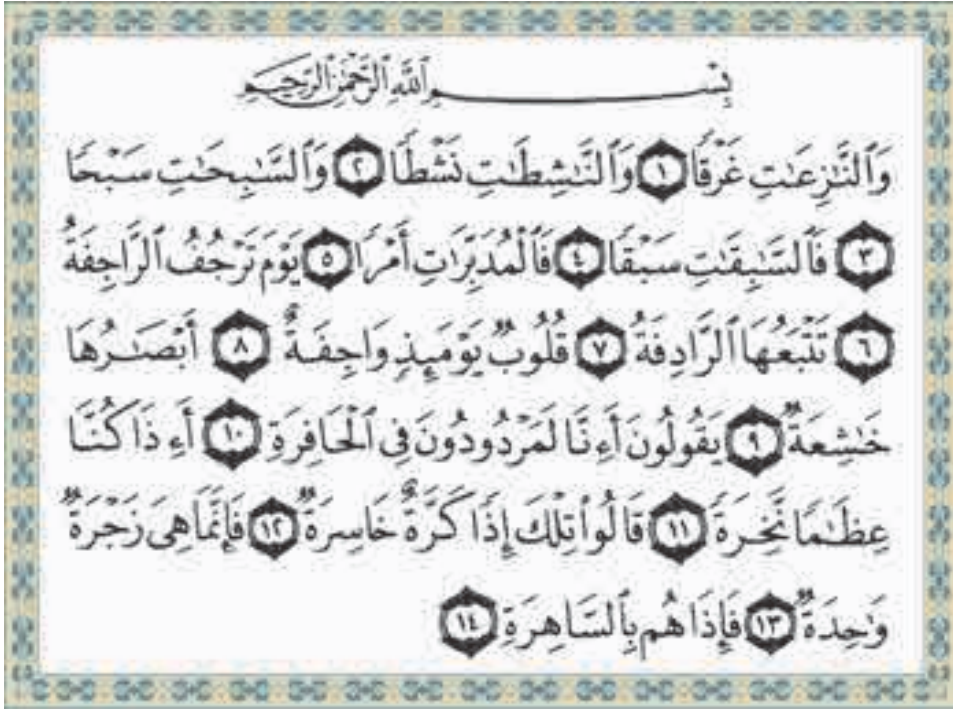 بِسْمِ ٱللَّهِ ٱلرَّحْمَٰنِ ٱلرَّحِيمِ
وَٱلنَّٰزِعَٰتِ غَرْقًا ١ وَٱلنَّٰشِطَٰتِ نَشْطًا ٢ وَٱلسَّٰبِحَٰتِ سَبْحًا
٣ فَٱلسَّٰبِقَٰتِ سَبْقًا ٤ فَٱلْمُدَبِّرَٰتِ أَمْرًا ٥ يَوْمَ تَرْجُفُ ٱلرَّاجِفَةُ
٦ تَتْبَعُهَا ٱلرَّادِفَةُ ٧ قُلُوبٌ يَوْمَئِذٍ وَاجِفَةٌ ٨ أَبْصَٰرُهَا
خَٰشِعَةٌ ٩ يَقُولُونَ أَءِنَّا لَمَرْدُودُونَ فِى ٱلْحَافِرَةِ ١٠ أَءِذَا كُنَّا
عِظَٰمًا نَّخِرَةً ١١ قَالُوا۟ تِلْكَ إِذًا كَرَّةٌ خَاسِرَةٌ ١٢ فَإِنَّمَا هِىَ زَجْرَةٌ
وَٰحِدَةٌ ١٣ فَإِذَا هُم بِٱلسَّاهِرَةِ ١٤